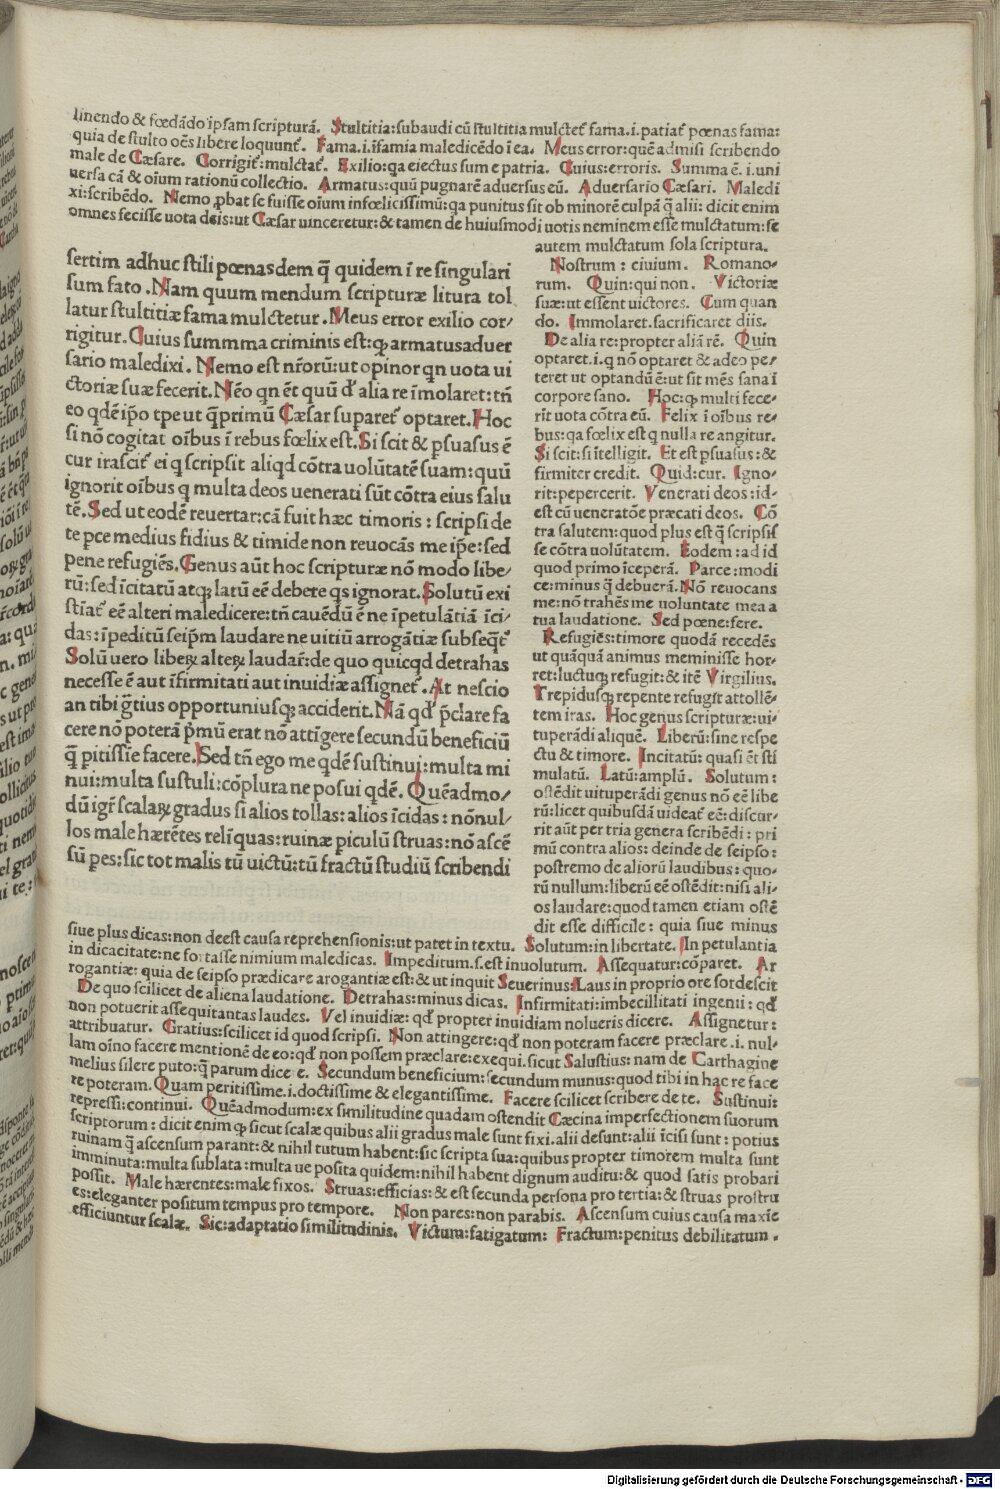 linendo & fœdãdo ipsam scripturã. Stultitia:subaudi cũ stultitia mulctet᷒ fama.i.patiat᷒ pœnas fama:
quia de stulto oẽs libere loquunt᷒. Fama.i.ĩfamia maledicẽdo ĩ ea. Meus error:quẽ admisi scribendo
male de Cæsare. Corrigit᷒:mulctat᷒. Exilio:qa eiectus sum e patria. Cuius:erroris. Summa ẽ.i.uni
uersa cã & oĩum rationũ collectio. Armatus:quũ pugnarẽ aduersus eũ. Aduersario Cæsari. Maledi
xi:scribẽdo. Nemo ꝓbat se fuisse oĩum infœlicissimũ:qa punitus sit ob minorẽ culpã q̃ alii: dicit enim
omnes fecisse uota deis:ut Cæsar uinceretur:& tamen de huiusmodi uotis neminem esse mulctatum:se
autem mulctatum sola scriptura.
sertim adhuc stili pœnas dem q̃ quidem ĩ re singulari
sum fato. Nam quum mendum scripturæ litura tol
latur stultitiæ fama mulctetur. Meus error exilio cor/
rigitur. Cuius summma criminis est:ꝙ armatus aduer
sario maledixi. Nemo est nr̃orũ:ut opinor qn uota ui
ctoriæ suæ fecerit. Nẽo qn ẽt quũ d᷒ alia re ĩmolaret:tñ
eo qdẽ ip̃o tpe ut q̃primũ Cæsar supareť optaret. Hoc
si nõ cogitat oĩbus ĩ rebus fœlix est. Si scit & ꝑsuasus ẽ
cur irasciť ei q scripsit aliqd cõtra uolũtatẽ suam:quũ
ignorit oĩbus q multa deos uenerati sũt cõtra eius salu
tẽ. Sed ut eodẽ reuertar:cã fuit hæc timoris : scripsi de
te pce medius fidius & timide non reuocãs me ip̃e:sed
pene refugiẽs. Genus aũt hoc scripturæ nõ modo libe/
rũ:sed ĩcitatũ atqꝫ latũ eẽ debere qs ignorat. Solutũ exi
stiať eẽ alteri maledicere:tñ cauẽdũ ẽ ne ĩpetulãtiã ĩci/
das:ĩpeditũ seip̃m laudare ne uitiũ arrogãtiæ subseq̃ť
Solũ uero liberꝝ alterꝝ laudar̃:de quo quicqd detrahas
necesse ẽ aut ĩfirmitati aut inuidiæ assigneť. At nescio
an tibi g̃tius opportuniusqꝫ acciderit. Nã qd᷒ p̃clare fa
cere nõ poterã p̃mũ erat nõ attĩgere secundũ beneficiũ
q̃ pitissĩe facere. Sed tñ ego me qdẽ sustinui:multa mi
nui:multa sustuli:cõplura ne posui qdẽ. Quẽadmo/
dũ igr̃ scalarꝝ gradus si alios tollas:alios ĩcidas : nõnul/
los male hærẽtes relĩquas:ruinæ piculũ struas:nõ ascẽ
sũ pes:sic tot malis tũ uictũ:tũ fractũ studiũ scribendi
Nostrum : ciuium. Romano/
rum. Quin:qui non. Victoriæ
suæ:ut essent uictores. Cum quan
do. Immolaret.sacrificaret diis.
De alia re:propter aliã rẽ. Quin
optaret.i.q nõ optaret & adeo per/
teret ut optandũ ẽ:ut sit mẽs sana ĩ
corpore sano. Hoc:ꝙ multi fece/
rĩt uota cõtra eũ. Felix ĩ oĩbus re/
bus:qa fœlix est q nulla re angitur.
Si scit:si ĩtelligit. Et est ꝑsuasus:&
firmiter credit. Quid:cur. Igno/
rit:pepercerit. Venerati deos:id/
est cũ ueneratõe præcati deos. Cõ
tra salutem:quod plus est q̃ scripsis
se cõtra uolũtatem. Eodem:ad id
quod primo ĩceperã. Parce:modi
ce:minus q̃ debuerã. Nõ reuocans
me:nõ trahẽs me uoluntate mea a
tua laudatione. Sed pœne:fere.
Refugiẽs:timore quodã recedẽs
ut quãquã animus meminisse hor/
ret:luctuqꝫ refugit:& itẽ Virgilius.
Trepidusqꝫ repente refugit attollẽ/
tem iras. Hoc genus scripturæ:ui/
tuperãdi aliquẽ. Liberũ:sine respe
ctu & timore. Incitatũ:quasi ẽt sti
mulatũ. Latũ:amplũ. Solutum:
ostẽdit uituperãdi genus nõ eẽ libe
rũ:licet quibusdã uideať eẽ:discur/
rit aũt per tria genera scribẽdi : pri
mũ contra alios: deinde de seipso:
postremo de aliorũ laudibus : quo/
rũ nullum:liberũ eẽ ostẽdit:nisi ali/
os laudare:quod tamen etiam ostẽ
dit esse difficile : quia siue minus
siue plus dicas:non deest causa reprehensionis:ut patet in textu. Solutum:in libertate. In petulantia
in dicacitate:ne fortasse nimium maledicas. Impeditum.s.est inuolutum. Assequatur:cõparet. Ar
rogantiæ: quia de seipso prædicare arogantiæ est:& ut inquit Seuerinus:Laus in proprio ore sordescit
De quo scilicet de aliena laudatione. Detrahas:minus dicas. Infirmitati:imbecillitati ingenii: qd᷒
non potuerit assequi tantas laudes. Vel inuidiæ: qd᷒ propter inuidiam nolueris dicere. Assignetur:
attribuatur. Gratius:scilicet id quod scripsi. Non attingere:qd᷒ non poteram facere præclare.i.nul/
lam oĩno facere mentionẽ de eo:qd᷒ non possem præclare:exequi.sicut Salustius: nam de Carthagine
melius silere puto:q̃ parum dicere. Secundum beneficium:secundum munus:quod tibi in hac re face
re poteram. Quam peritissime.i.doctissime & elegantissime. Facere scilicet scribere de te. Sustinui:
repressi:continui. Quẽadmodum:ex similitudine quadam ostendit Cæcina imperfectionem suorum
scriptorum : dicit enim ꝙ sicut scalæ quibus alii gradus male sunt fixi.alii desunt:alii ĩcisi sunt : potius
ruinam q̃ ascensum parant:& nihil tutum habent:sic scripta sua:quibus propter timorem multa sunt
imminuta:multa sublata:multa ue posita quidem:nihil habent dignum auditu:& quod satis probari
possit. Male hærentes:male fixos. Struas:efficias:& est secunda persona pro tertia:& struas prostru
es:eleganter positum tempus pro tempore. Non pares:non parabis. Ascensum cuius causa maxĩe
efficiuntur scalæ. Sic:adaptatio similitudinis. Victum:fatigatum: Fractum:penitus debilitatum.
Digitalisierung gefördert durch die Deutsche Forschungsgemeinschaft - DFG